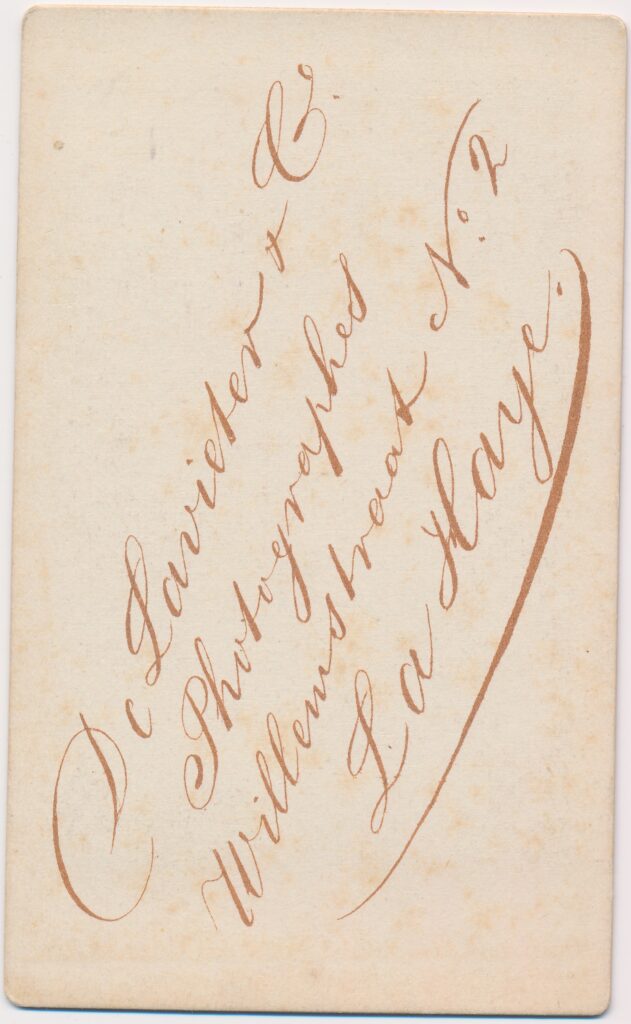 De Lavieter & Co.
Photographes
Willemstraat No. 2
La Haye.